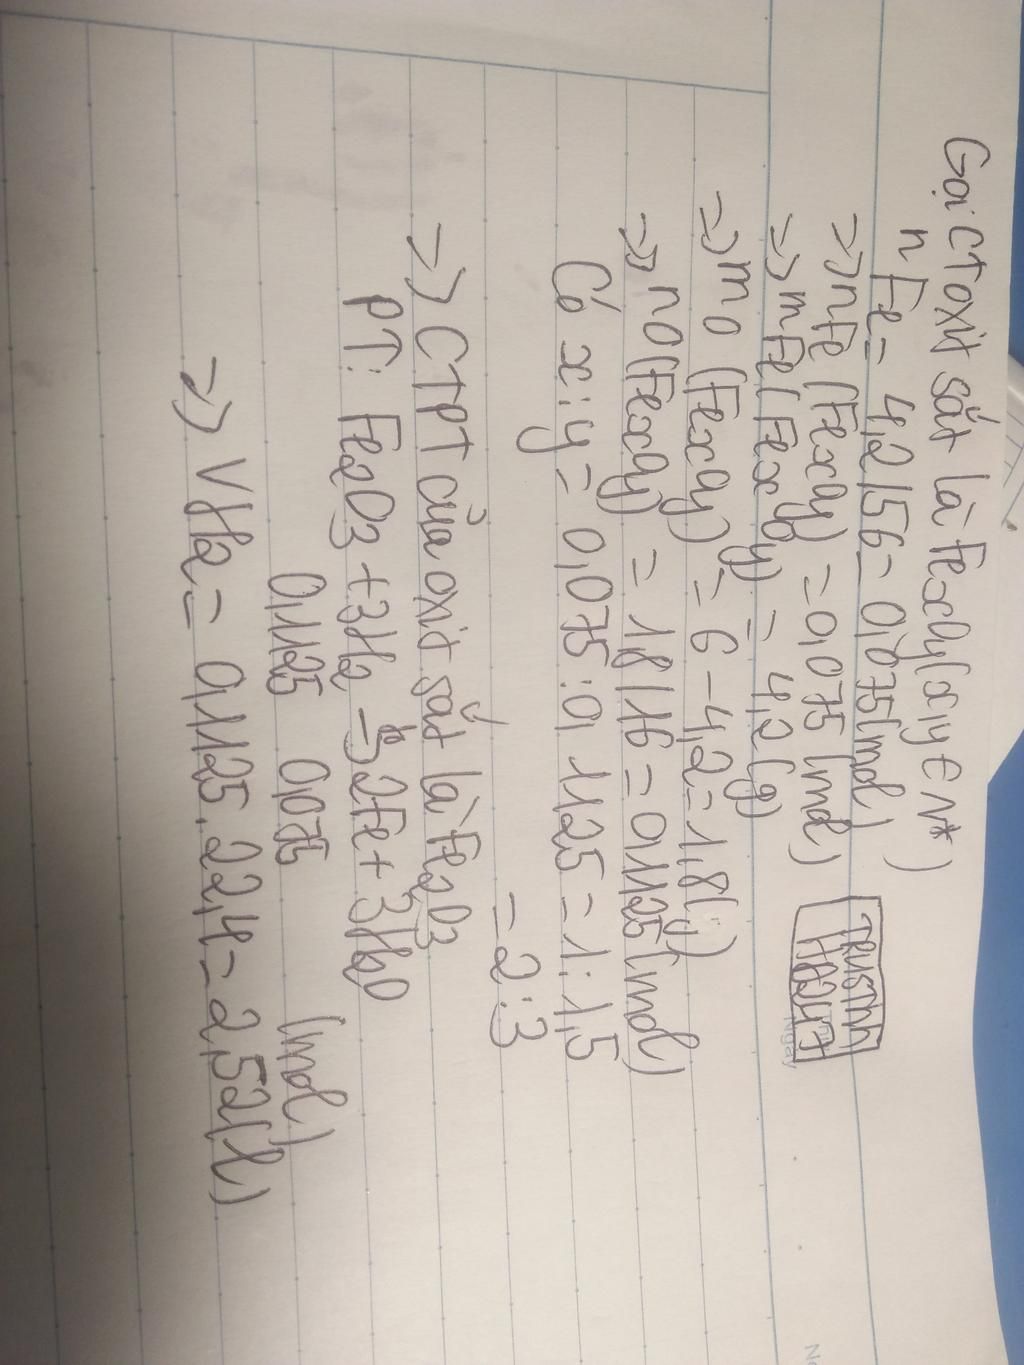 Gọi CT oxit sắt là FexOy(x,y ∈ N*)
nFe = 4,2/56 = 0,075(mol)
=> nFe (FexOy) = 0,075 (mol)
TRUSTNN
=> mFe(FexOy) = 4,2(g)
=> mO (FexOy) = 6 - 4,2 = 1,8(g)
=> nO(FexOy) = 1,8/16 = 0,1125(mol)
Có x:y = 0,075:0,1125 = 1:1,5
= 2:3
=> CTPT của oxit sắt là Fe2O3
PT: Fe2O3 + 3H2 -> 2Fe + 3H2O
0,1125 0,075 (mol)
=> VH2 = 0,1125.22,4 = 2,52(l)